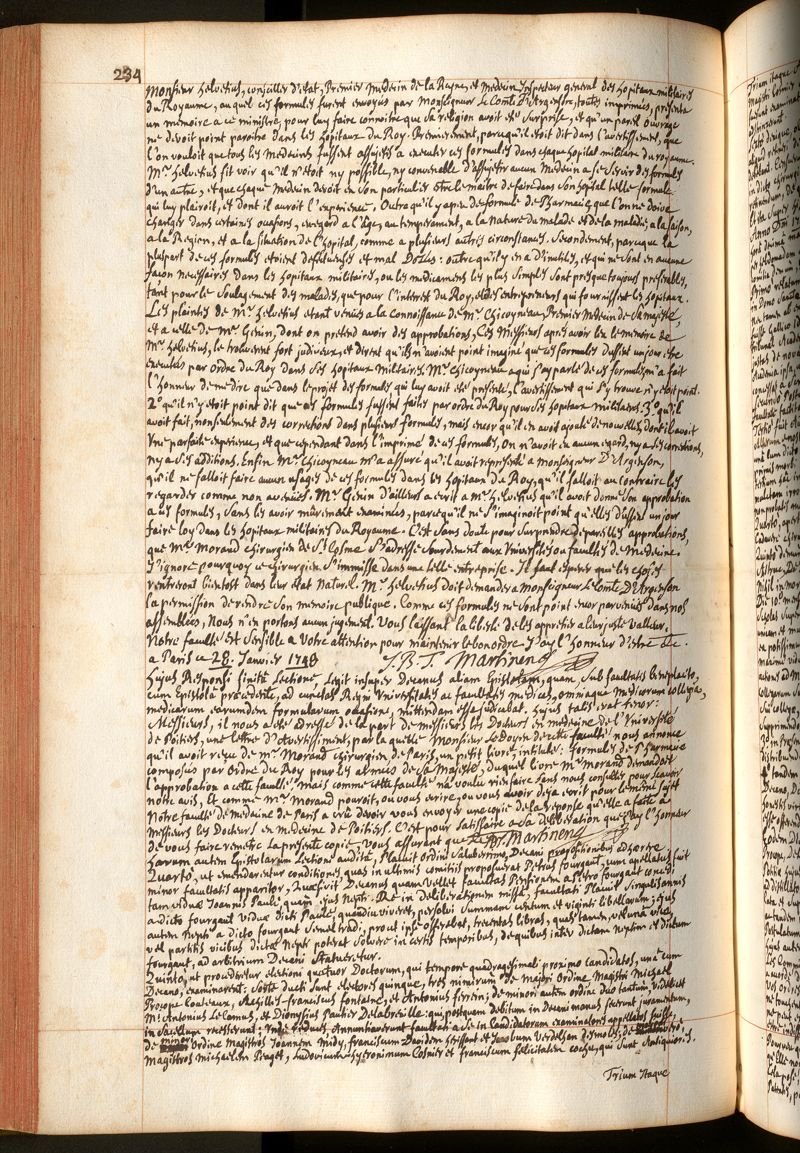 234
Monsieur helvetius, conseiller d'etat, Premier Medecin de la Reyne, et Medecin Inspecteur general des hopitaux militaires
du Royaume, auquel ces formules furent envoyés par Monseigneur Le Comte D'Argenson, toutes imprimées, presenta
un memoire a ce ministre, pour luy faire connoitre que sa religion avoit été surprise, et qu'un pareil ouvrage
ne devoit point paroitre dans les hopitaux du Roy. Premierement, parcequ'il étoit dit dans l'avertissement, que
l'on vouloit que tous les medecins fussent assujetis a executer ces formules dans chaque hopital militaire du royaume.
Mr. helvetius fit voir qu'il n'étoit ny possible, ny convenable d'assujetir aucun Medecin a se servir des formules
d'un autre, et que chaque Medecin devoit en son particulier etre le maitre de faire dans son hopital telle formule
qui luy plairoit, et dont il auroit l'experience. Outre qu'il y a peu de formule de Pharmacie que l'on ne doive
changer dans certaines occasions, eu egard a l'age, au temperament, a la nature du malade et de la maladie, a la saison,
a la Region, et a la situation de l'hopital, comme a plusieurs autres circonstances. Secondement, parceque la
pluspart de ces formules etoient defectueuses et mal dosées: outre qu'il y en a d'inutiles, et qui ne sont en aucune
facon necessaires dans les hopitaux militaires, ou les medicamens les plus simples sont presque toujours preferables,
tant pour le soulagement des malades, que pour l'interest du Roy, et des entrepreneurs qui fournissent les hopitaux.
Les plaintes de Mr. helvetius etant venues a la connoissance de Mr. Chicoyneau, Premier Medecin de Sa majesté,
et a celle de Mr. Genin, dont on pretend avoir des approbations, Ces Messieurs apres avoir leu le memoire de
Mr. helvetius, le trouverent fort judicieux, et dirent qu'ils n'avoient point imaginé que ces formules dussent un jour etre
executées par ordre du Roy dans ses hopitaux militaires. Mr. Chicoyneau a qui j'ay parlé de ces formules m'a fait
l'honneur de me dire que dans le projet des formules qui luy avoit été presenté, l'avertissement qui s'y trouve n'y etoit point.
2° qu'il n'y etoit point dit que ces formules fussent faites par ordre du Roy pour ses hopitaux militaires. 3° qu'il
avoit fait, non seulement des corrections dans plusieurs formules, mais encor qu'il en avoit ajouté de nouvelles, dont il avoit
Une parfaite experience, et que cependant dans l'imprimé de ces formules, on n'avoit eu aucun egard, ny a ses corrections,
ny a ses additions. Enfin Mr. Chicoyneau m'a assuré qu'il avoit representé a Monseigneur D'Argenson,
qu'il ne falloit faire aucun usage de ces formules dans les hopitaux du Roy, qu'il falloit au contraire les
regarder comme non avenues. Mr. Genin d'ailleurs a ecrit a Mr. helvetius qu'il avoit donné son approbation
a ces formules, sans les avoir mûrement examinées, parcequ'il ne s'imaginoit point qu'elles dussent un jour
faire loy dans les hopitaux militaires du Royaume. C'est sans doute pour surprendre de pareilles approbations,
que Mr. Morand chirurgien de St. Cosme s'adresse sourdement aux Universités ou facultés de Medecine.
J'ignore pourquoy ce chirurgien s'immisse dans une telle entreprise. Il faut esperer que les choses
rentreront bientost dans leur etat naturel. Mr. helvetius doit demander a monseigneur le Comte D'Argenson
la permission de rendre son memoire publique. Comme ces formules ne sont point encor parvenues dans nos
assemblées, Nous n'en portons aucun jugement. Vous laissant la liberté de les apprecier a leur juste valleur.
Notre faculté est sensible a Votre attention pour maintenir le bon ordre. J'ay l'honneur d'etre &c.
a Paris ce 28. Janvier 1748 J. B. T. Martinenq
Hujus Responsi finitâ Lectione, Legit insuper Decanus aliam Epistolam, quam, sub facultatis beneplacito,
cum Epistolâ praecedente, ad cunctas Regni Universitates ac facultates medicas, omniaque Medicorum collegia,
medicarum earumdem formularum occasione, mittendam esse judicabat. hujus talis erat tenor:
Messieurs, il nous a eté adressé de la part de messieurs les Docteurs en medecine de l'Université
de Poitiers, une lettre d'avertissement, par laquelle Monsieur Le Doyen de cette faculté nous annonce
qu'il avoit reçu de Mr. Morand chirurgien de Paris, un petit livre, intitulé: formules de Pharmacie
composées par Ordre du Roy pour les armées de Sa Majesté, duquel livre Mr. Morand demandoit
l'approbation a cette faculté. Mais comme cette faculté n'a voulu rien faire sans nous consulter pour scavoir
notre avis, Et comme Mr. Morand pouroit, ou vous ecrire, ou vous avoir deja ecrit pour le même sujet
Notre faculté de medecine de Paris a cru devoir vous envoyer une copie de la reponse qu'elle a faite a
messieurs les Docteurs en medecine de Poitiers. C'est pour satisfaire a sa deliberation que j'ay l'honneur
de vous faire remettre la presente copie. Vous assurant que &c. J. B. T. Martinenq
harum autem Epistolarum Lectione auditâ, Placuit Ordini Saluberrimo, Decani propositionibus adhaerere.
Quarto, ut emendarentur conditiones, quas in ultimis comitiis proposuerat Petrus fourgaut, cum apellatus fuit
minor facultatis apparitor, Quaesivit Decanus quam vellet facultas Pensionem a Petro fourgaut concedi
tam viduae Joannis Pauli, quam ejus Nepti. Re in deliberationem missâ, facultati Placuit singulis annis
a dicto fourgaut viduae dicti Pauli, quandiu viveret, persolvi summam centum et viginti librarum; ejus
autem Nepti a dicto fourgaut semel tradi, prout ipse offerebat, trecentas libras, quas tamen, vel una vice,
vel partitis vicibus dictae Nepti poterat solvere in certis temporibus, de quibus inter dictam neptim et dictum
fourgaut, ad arbitrium Decani Statueretur.
Quinto, ut procederetur electioni quatuor Doctorum, qui tempore quadragesimali proximo Candidatos, una cum
Decano, examinarent. Sorte ducti sunt electores quinque, tres nimirum de majori Ordine Magistri Michael
Procope Couteaux, Achilles-franciscus fontaine, et Antonius ferrein; de minori autem ordine duo tantum, videlicet
Mi. Antonius Le Camus, et Dionysius Pautier Delabreuille: qui, postquam debitum in Decani manus fecerunt juramentum,
in Sacellum recesserunt: Inde reduces, Annuntiaverunt facultati a se in Candidatorum examinatores appellatos fuisse,
ordine Magistros Joannem Midy, franciscum Davidem herissant et Jacobum Verdelhan
Magistros Michaelem Peaget, Ludovicum hyeronimum Cosnier et franciscum felicitatem Cochu, qui sunt antiquiores.
Trium itaque